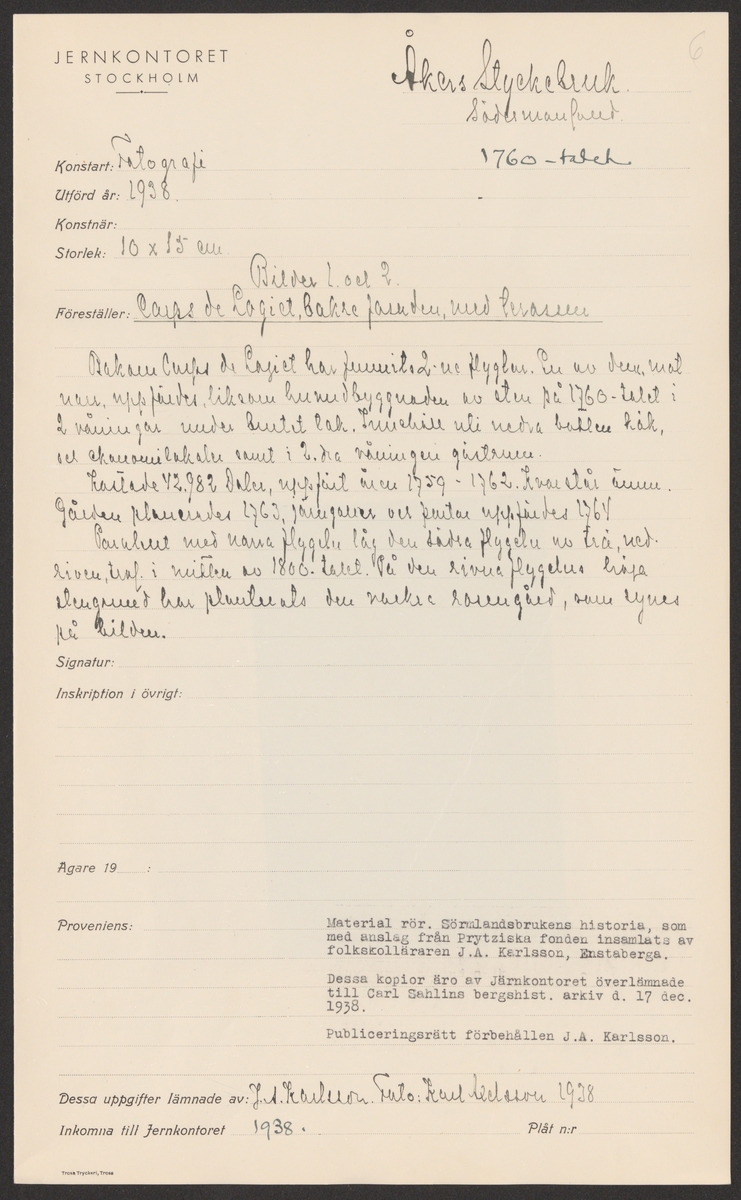 6
JERNKONTORET
STOCKHOLM
Åkers Styckebruk.
Södermanland.
1760-talet
Konstart: Fotografi
Utförd år: 1938.
Konstnär:
Storlek: 10 x 15 cm
Bilder 1. och 2.
Föreställer: Corps de Logiet, bakre fasaden, med terassen
Bakom Corps de Logiet har funnits 2-ne flyglar. En av dem, mot
norr, uppfördes, liksom huvudbyggnaden av sten på 1760-talet i
2 våningar under brutit tak. Innehöll uti nedra botten kök,
och ekonomilokaler samt i 2.dra våningen gästrum.
Kostade 42.982 Daler, uppfört åren 1759-1762. Kvar står ännu.
Gården planerades 1763, järngaller och portar uppfördes 1764
Parallelt med norra flygeln låg den södra flygeln av trä, ned-
riven, trol. i mitten av 1800-talet. På den rivna flygelns höga
stengrund har planterats den vackra rosengård, som synes
på bilden.
Signatur:
Inskription i övrigt:
Ägare 19 :
Proveniens:
Material rör. Sörmlandsbrukens historia, som
med anslag från Prytziska fonden insamlats av
folkskolläraren J.A. Karlsson, Enstaberga.
Dessa kopior äro av Järnkontoret överlämnade
till Carl Sahlins bergshist. arkiv d. 17 dec.
1938.
Publiceringsrätt förbehållen J.A. Karlsson.
Dessa uppgifter lämnade av: J.A. Karlsson. Foto: Karl Axelsson 1938
Inkomna till Jernkontoret 1938. Plåt n:r
Trosa Tryckeri, Trosa